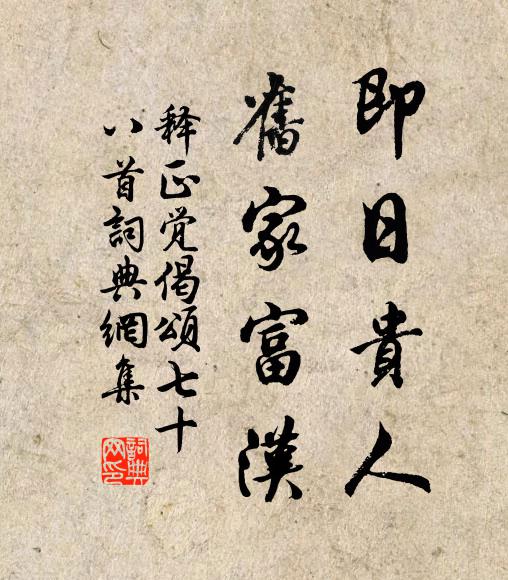 即日貴人
舊家富漢
释正觉偈頌七十
八首詞典網集
詞典
网印